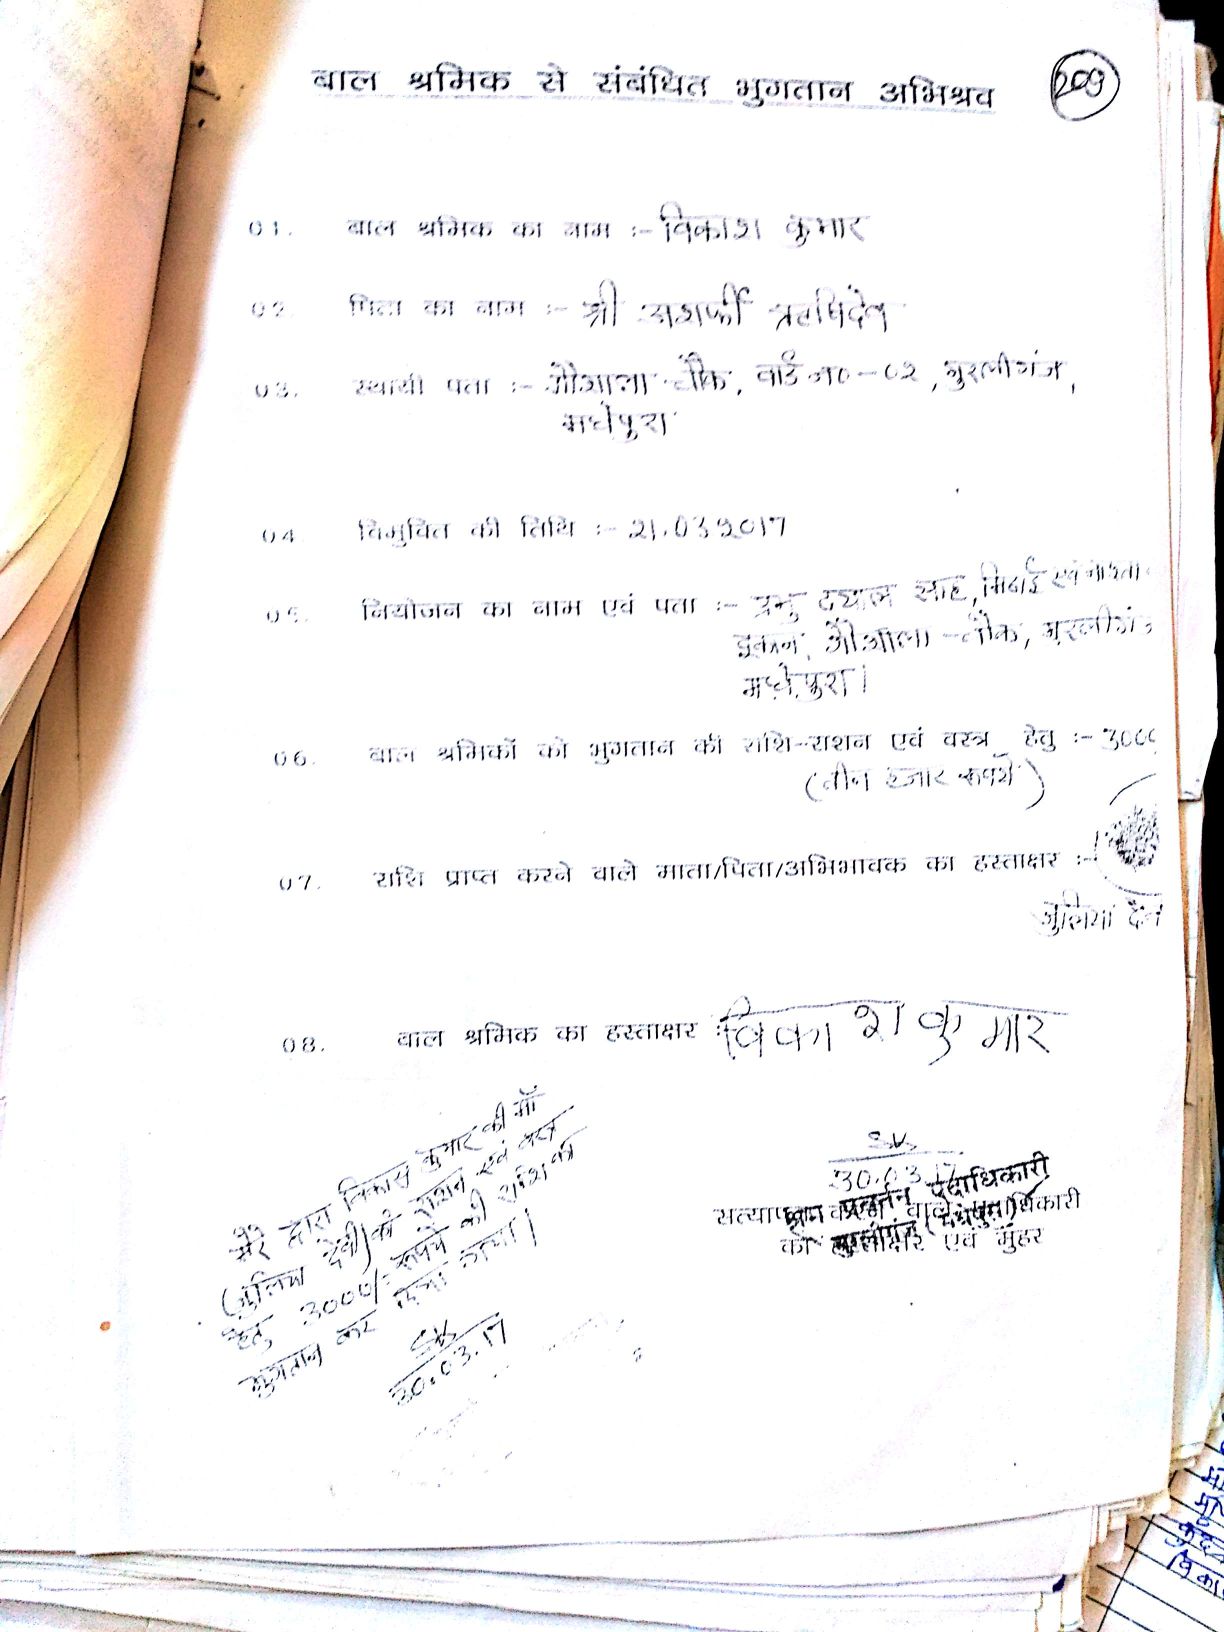 बाल श्रमिक से संबंधित भुगतान अभिश्रव
209
01. बाल श्रमिक का नाम :- विकाश कुमार
02. पिता का नाम :- श्री असर्फी ऋषिदेव
03. स्थायी पता :- गौशाला चौक, वार्ड न०-02, मुरलीगंज,
मधेपुरा
04. विमुक्ति की तिथि :- 21.03.2017
05. नियोजन का नाम एवं पता :- प्रभु दयाल साह, मिठाई एवं नाश्ता
दुकान, गौशाला चौक, मुरलीगंज
मधेपुरा।
06. बाल श्रमिकों को भुगतान की राशि-राशन एवं वस्त्र हेतु :- 3000
(तीन हजार रूपये)
07. राशि प्राप्त करने वाले माता/पिता/अभिभावक का हस्ताक्षर :-
08. बाल श्रमिक का हस्ताक्षर :- विकाश कुमार
मेरे द्वारा विकास कुमार की माँ
(जुलिया देवी) को राशन एवं वस्त्र
हेतु 3000/- रूपये की राशि का
भुगतान कर दिया गया।
30.03.17
30.03.17
श्रम प्रवर्तन पदाधिकारी
मुरलीगंज (मधेपुरा)
सत्यापन करने वाले पदाधिकारी
का हस्ताक्षर एवं मुहर